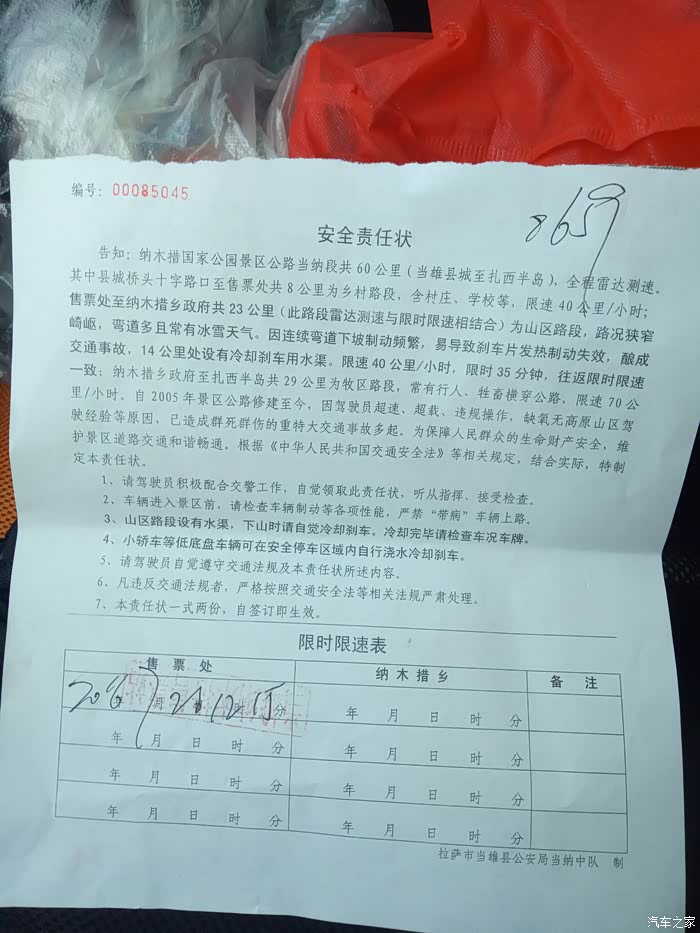 编号: 00085045
8659
安全责任状
告知：纳木措国家公园景区公路当纳段共60公里（当雄县城至扎西半岛），全程雷达测速。
其中县城桥头十字路口至售票处共8公里为乡村路段，含村庄、学校等，限速40公里/小时；
售票处至纳木措乡政府共23公里（此路段雷达测速与限时限速相结合）为山区路段，路况狭窄
崎岖，弯道多且常有冰雪天气。因连续弯道下坡制动频繁，易导致刹车片发热制动失效，酿成
交通事故，14公里处设有冷却刹车用水渠。限速40公里/小时，限时35分钟，往返限时限速
一致；纳木措乡政府至扎西半岛共29公里为牧区路段，常有行人、牲畜横穿公路，限速70公
里/小时。自2005年景区公路修建至今，因驾驶员超速、超载、违规操作，缺氧无高原山区驾
驶经验等原因，已造成群死群伤的重特大交通事故多起。为保障人民群众的生命财产安全，维
护景区道路交通和谐畅通。根据《中华人民共和国交通安全法》等相关规定，结合实际，特制
定本责任状。
1、请驾驶员积极配合交警工作，自觉领取此责任状，听从指挥、接受检查。
2、车辆进入景区前，请检查车辆制动等各项性能，严禁“带病”车辆上路。
3、山区路段设有水渠，下山时请自觉冷却刹车。冷却完毕请检查车况车牌。
4、小轿车等低底盘车辆可在安全停车区域内自行浇水冷却刹车。
5、请驾驶员自觉遵守交通法规及本责任状所述内容。
6、凡违反交通法规者，严格按照交通安全法等相关法规严肃处理。
7、本责任状一式两份，自签订即生效。
限时限速表
售 票 处 纳 木 措 乡 备 注
月 12 分 年 月 日 时 分
年 月 日 时 分 年 月 日 时 分
年 月 日 时 分 年 月 日 时 分
年 月 日 时 分 年 月 日 时 分
拉萨市当雄县公安局当纳中队 制
汽车之家